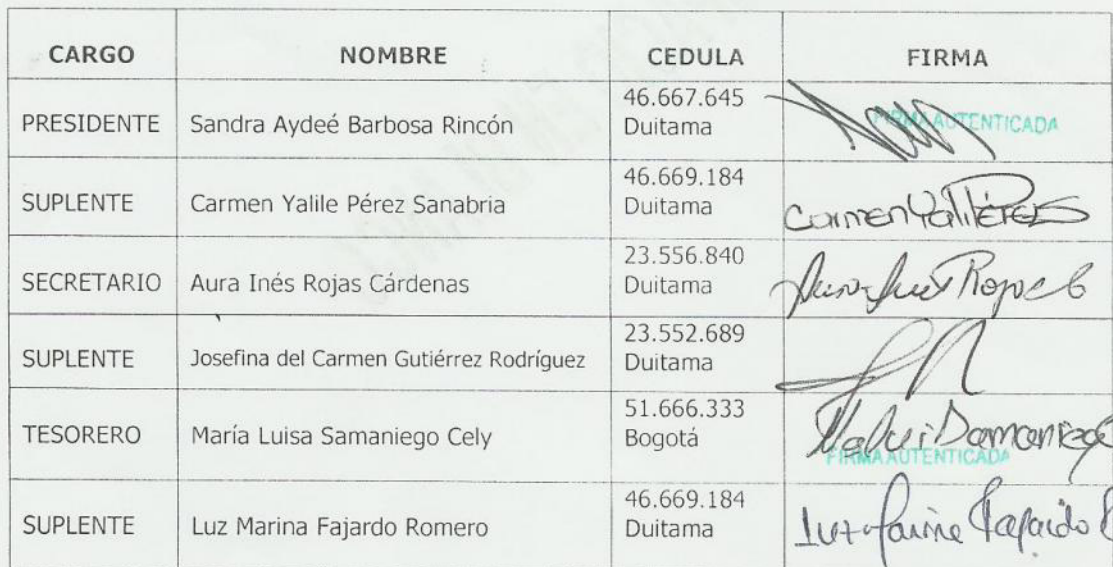 CARGO NOMBRE CEDULA FIRMA
PRESIDENTE Sandra Aydeé Barbosa Rincón 46.667.645
Duitama
FIRMA AUTENTICADA
SUPLENTE Carmen Yalile Pérez Sanabria 46.669.184
Duitama
Carmen Yali Pérez S
SECRETARIO Aura Inés Rojas Cárdenas 23.556.840
Duitama
SUPLENTE Josefina del Carmen Gutiérrez Rodríguez 23.552.689
Duitama
TESORERO María Luisa Samaniego Cely 51.666.333
Bogotá
FIRMA AUTENTICADA
SUPLENTE Luz Marina Fajardo Romero 46.669.184
Duitama